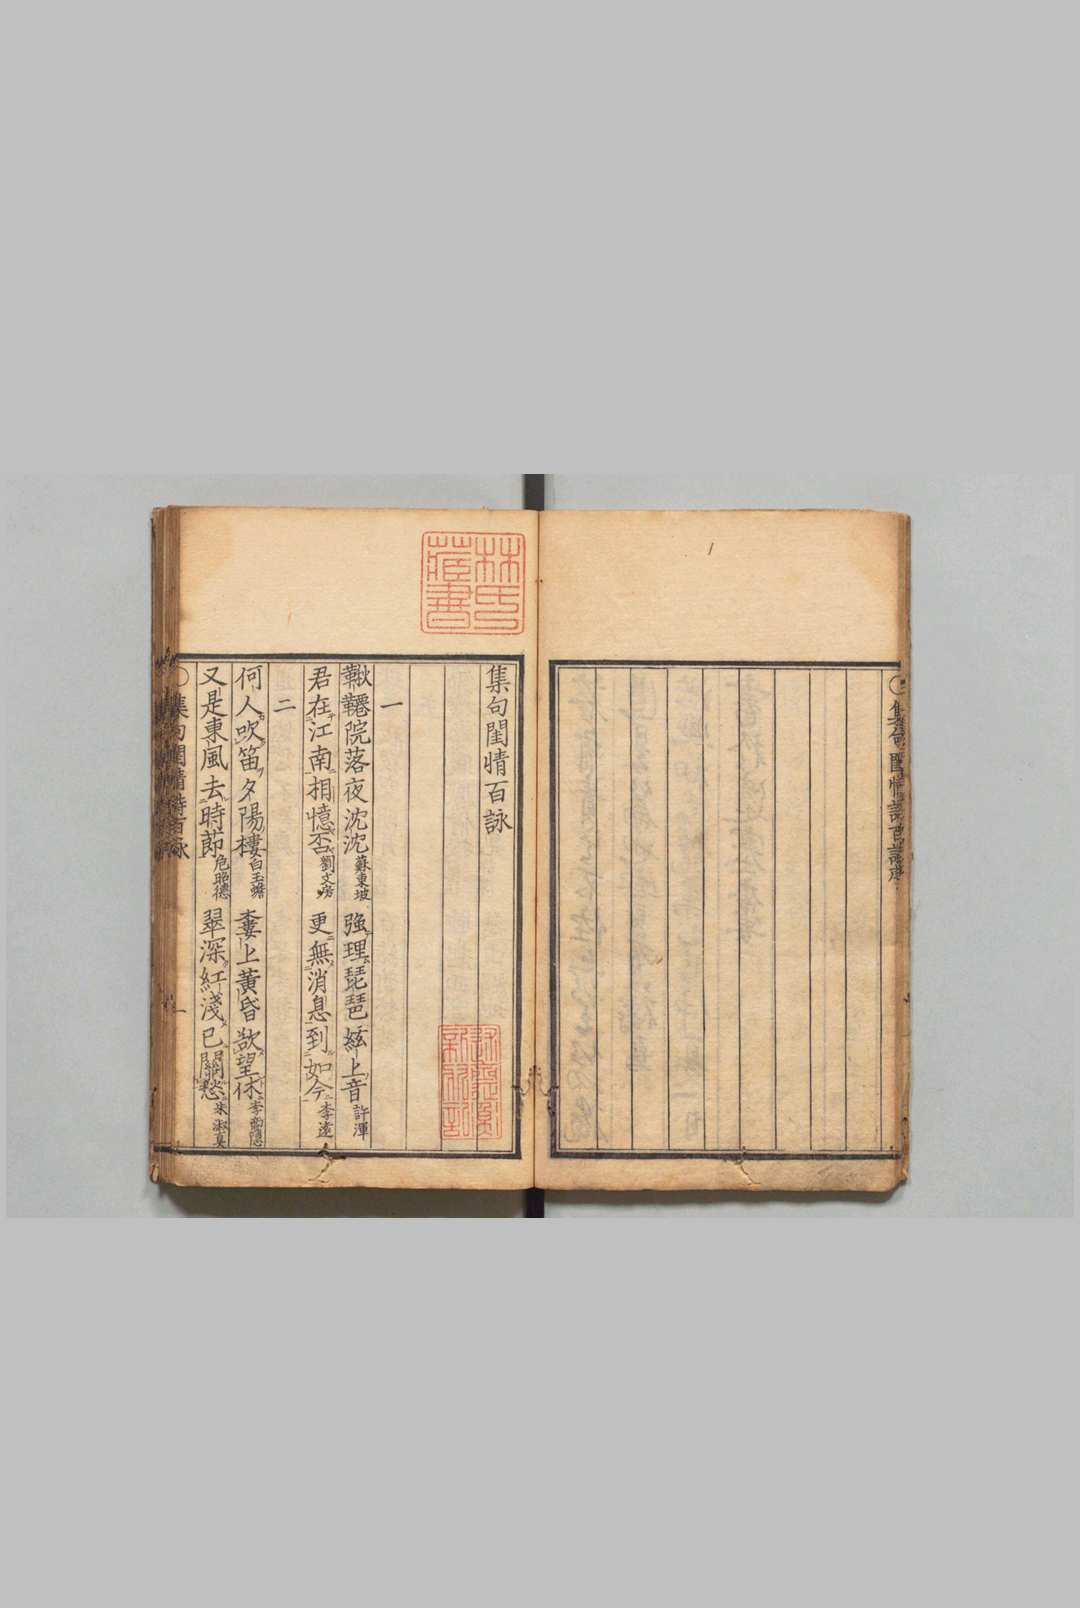 集句閨情百詠
一
鞦韆院落夜沈沈蘇東坡 強理琵琶絃上音許渾
君在江南相憶否劉文房 更無消息到如今李遠
二
何人吹笛夕陽樓白玉蟾 樓上黃昏欲望休李商隱
又是東風去時節危昭德 翠深紅淺已關愁朱淑真
林氏藏書